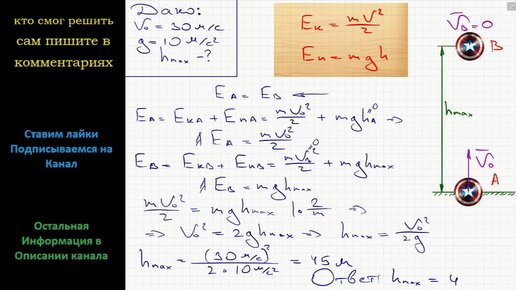 кто смог решить
сам пишите в
комментариях
Ставим лайки
Подписываемся на
Канал
Остальная
Информация в
Описании канала
Дано:
V₀ = 30 м/с
g = 10 м/с²
hmax - ?
Eк = mV²/2
Eп = mgh
EA = EB
EA = EкA + EпA = mV₀²/2 + mghA⁰ ⇒
EA = mV₀²/2
EB = EкB + EпB = mVB²/2 + mghmax
EB = mghmax
mV₀²/2 = mghmax |· 2/m ⇒
⇒ V₀² = 2ghmax ⇒ hmax = V₀²/2g
hmax = (30 м/с)²/2·10 м/с² = 45 м
Ответ: hmax = 4
VB = 0
B
hmax
V₀
A